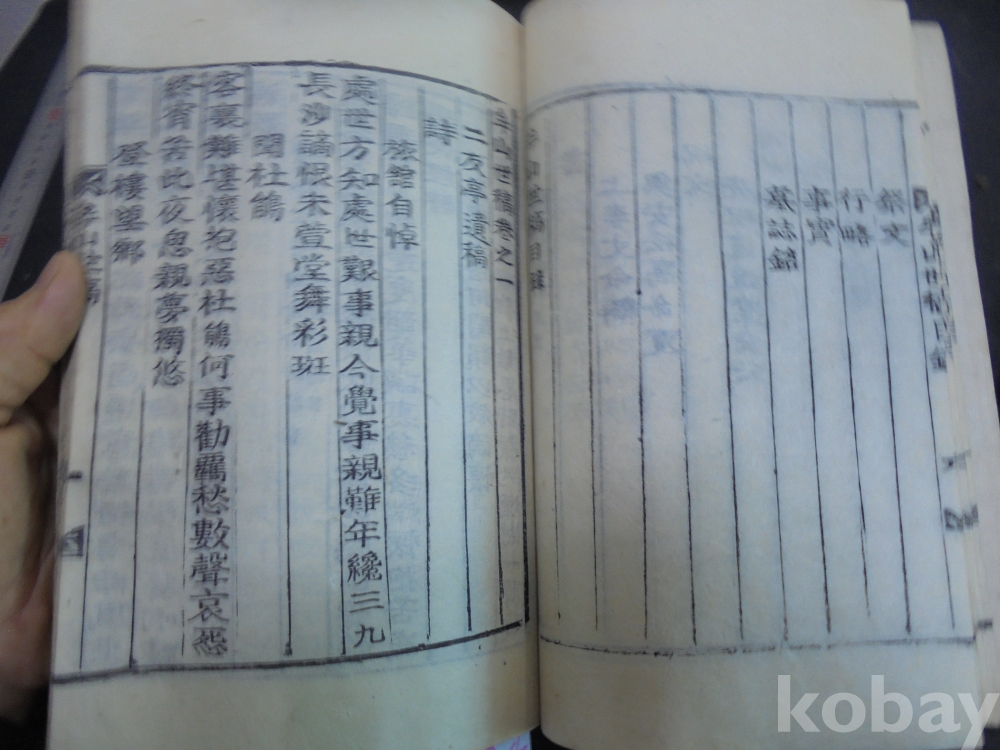 祭文
行略
事實
墓誌銘
山世稿卷之一
二友亭遺稿
詩
旅館自悼
處世方知處世艱事親今覺事親難年纔三九
長沙謫恨未萱堂舞彩斑
聞杜鵑
客裏難堪懷抱惡杜鵑何事勸羈愁數聲哀怨
終宵苦此夜思親夢獨悠
樓望鄉
山世稿
kobay